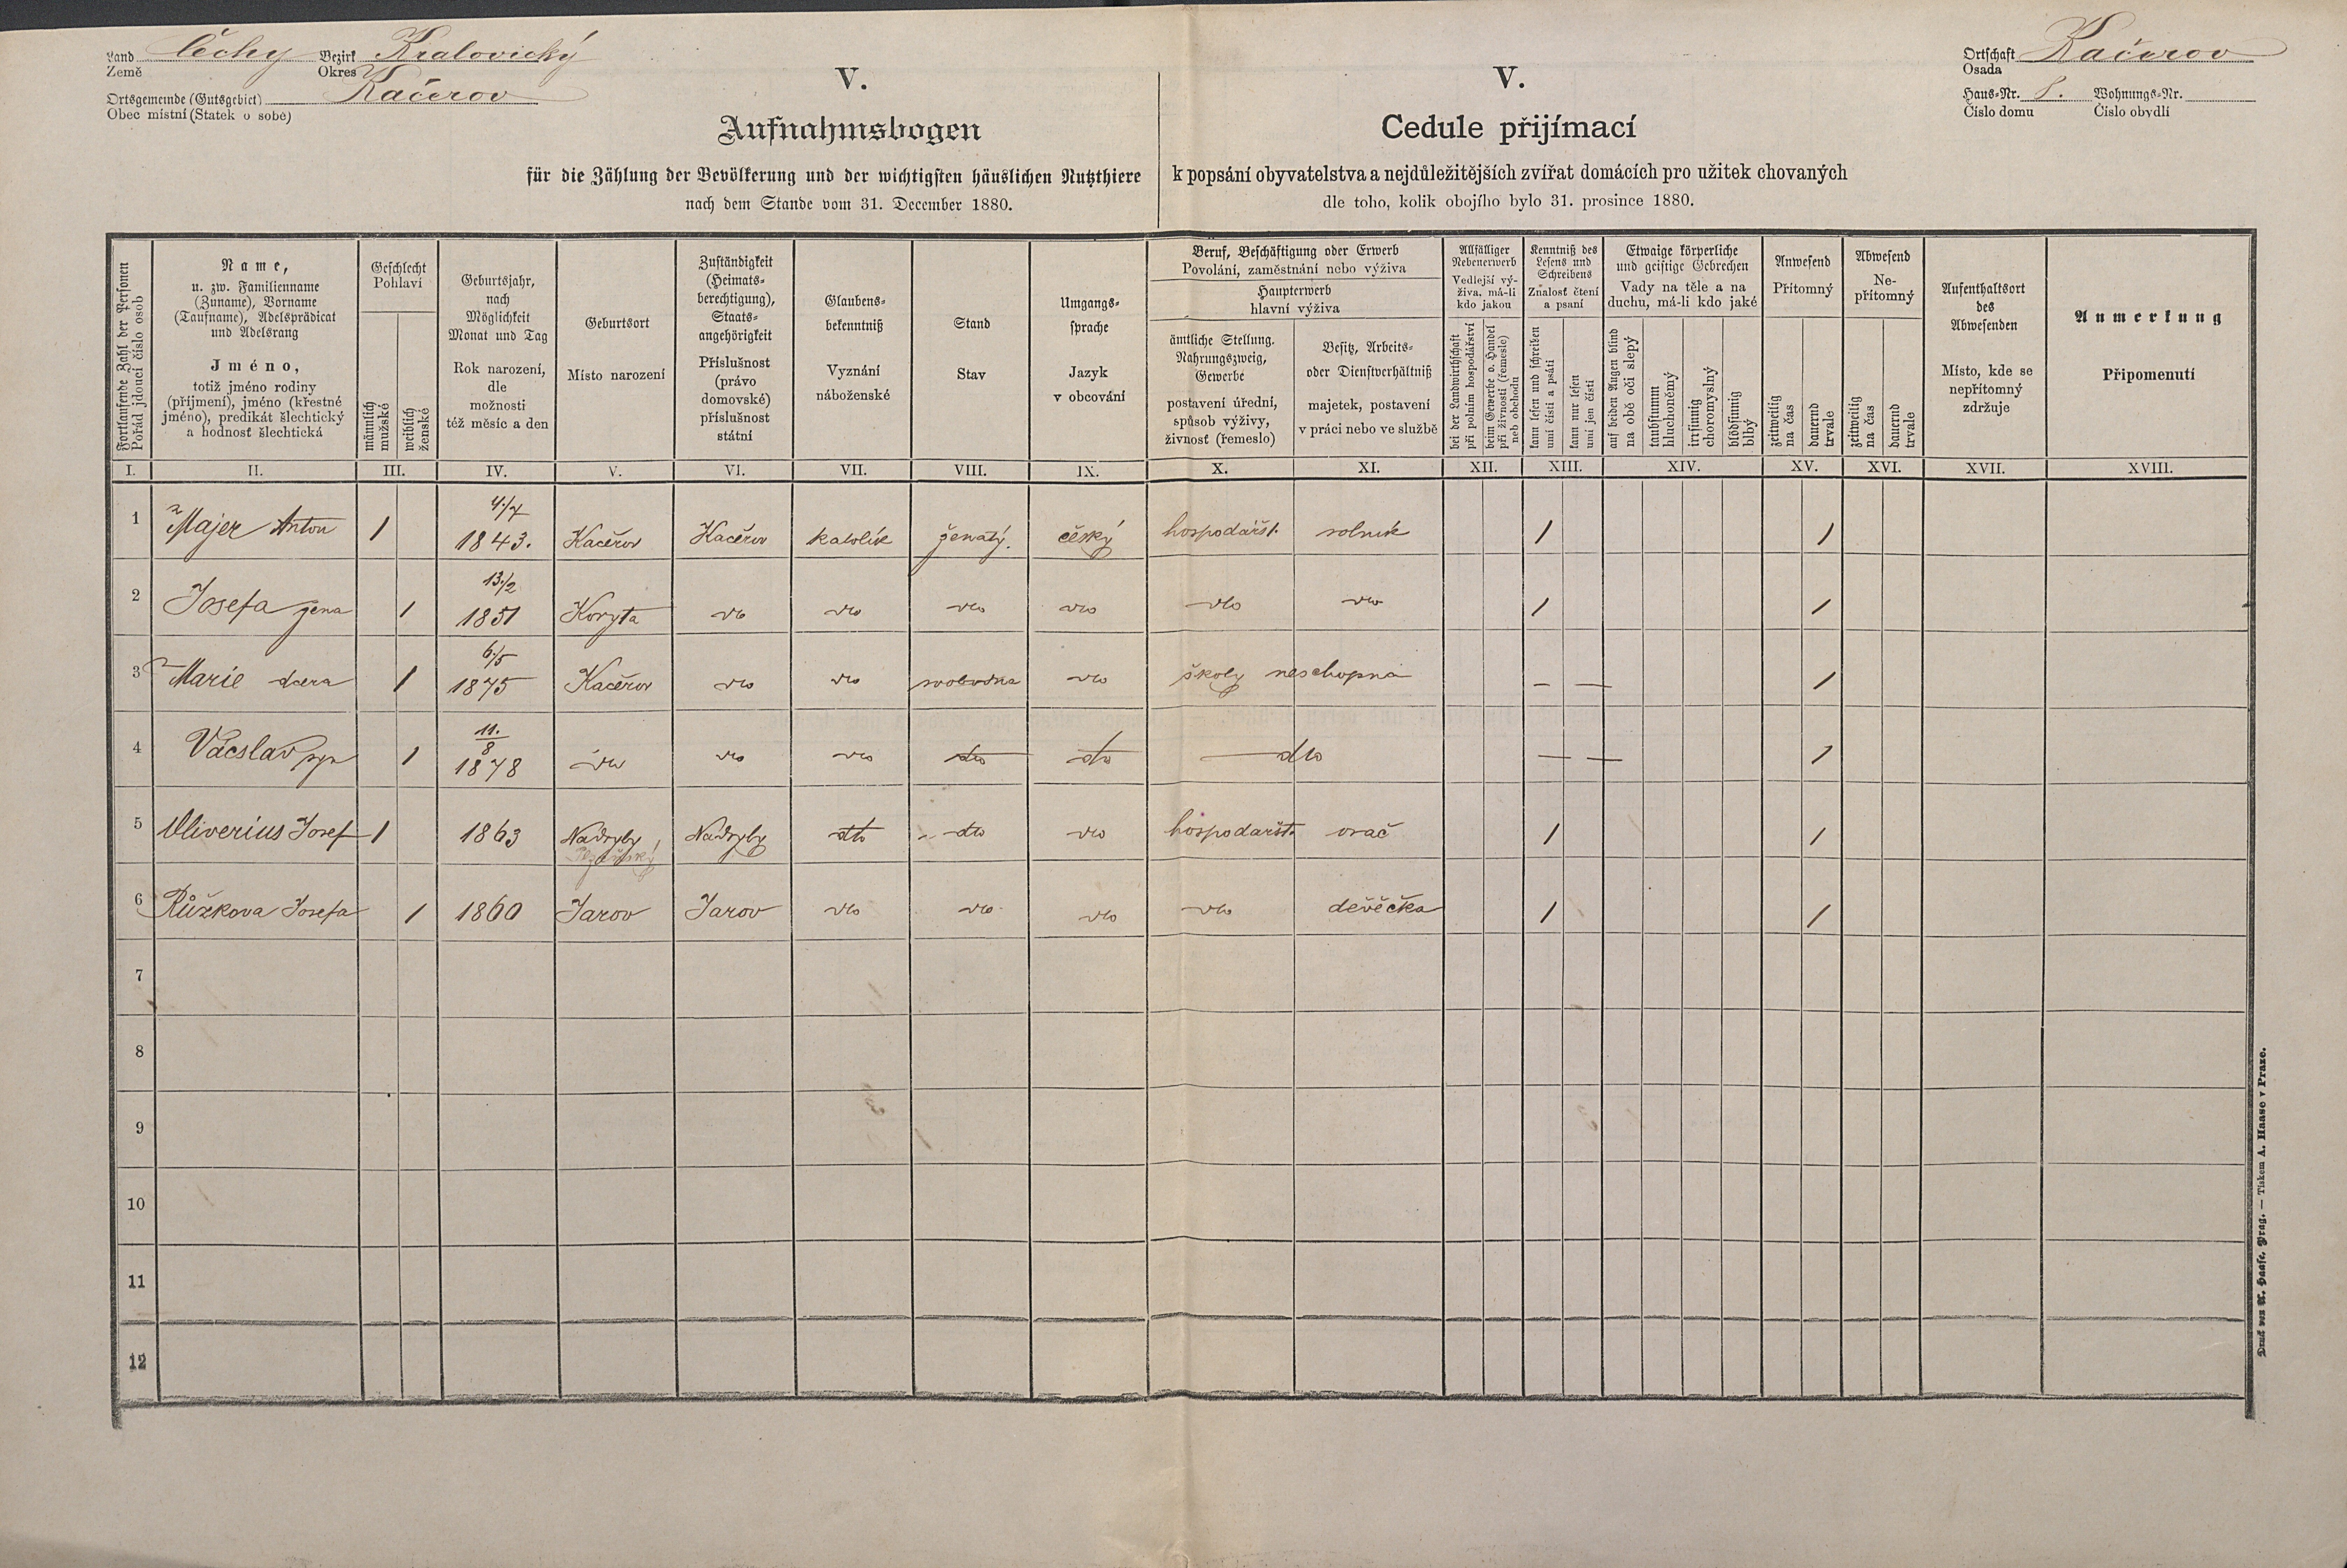 Land Čechy Bezirk Kralovický
Země Okres
Ortsgemeinde (Gutsgebiet) Kačerov
Obec místní (Statek o sobě)
V.
Aufnahmsbogen
für die Zählung der Bevölkerung und der wichtigsten häuslichen Nutzthiere
nach dem Stande vom 31. December 1880.
V.
Cedule přijímací
k popsání obyvatelstva a nejdůležitějších zvířat domácích pro užitek chovaných
dle toho, kolik obojího bylo 31. prosince 1880.
Ortschaft Kačerov
Osada
Haus-Nr. 8. Wohnungs-Nr.
Číslo domu Číslo obydlí
Fortlaufende Zahl der Personen
Pořád jdoucí číslo osob
Name,
u. zw. Familienname
(Zuname), Vorname
(Taufname), Adelsprädicat
und Adelsrang
Jméno,
totiž jméno rodiny
(příjmení), jméno (křestné
jméno), predikát šlechtický
a hodnost šlechtická
Geschlecht
Pohlaví
männlich
mužské
weiblich
ženské
Geburtsjahr,
nach
Möglichkeit
Monat und Tag
Rok narození,
dle
možnosti
též měsíc a den
Geburtsort
Místo narození
Zuständigkeit
(Heimats-
berechtigung),
Staats-
angehörigkeit
Příslušnost
(právo
domovské)
příslušnost
státní
Glaubens-
bekenntniß
Vyznání
náboženské
Stand
Stav
Umgangs-
sprache
Jazyk
v obcování
Beruf, Beschäftigung oder Erwerb
Povolání, zaměstnání nebo výživa
Haupterwerb
hlavní výživa
ämtliche Stellung.
Nahrungszweig,
Gewerbe
postavení úřední,
spůsob výživy,
živnost (řemeslo)
Besitz, Arbeits-
oder Dienstverhältniß
majetek, postavení
v práci nebo ve službě
Allfälliger
Nebenerwerb
Vedlejší vý-
živa, má-li
kdo jakou
bei der Landwirthschaft
při polním hospodářství
beim Gewerbe o. Handel
při živnosti (řemesle)
neb obchodu
Kenntniß des
Lesens und
Schreibens
Znalost čtení
a psaní
kann lesen und schreiben
umí čísti a psáti
kann nur lesen
umí jen čísti
Etwaige körperliche
und geistige Gebrechen
Vady na těle a na
duchu, má-li kdo jaké
auf beiden Augen blind
na obě oči slepý
taubstumm
hluchoněmý
irrsinnig
choromyslný
blödsinnig
blbý
Anwesend
Přítomný
zeitweilig
na čas
dauernd
trvale
Abwesend
Ne-
přítomný
zeitweilig
na čas
dauernd
trvale
Aufenthaltsort
des
Abwesenden
Místo, kde se
nepřítomný
zdržuje
Anmerkung
Připomenutí
I. II. III. IV. V. VI. VII. VIII. IX. X. XI. XII. XIII. XIV. XV. XVI. XVII. XVIII.
4./7
1 Majer Anton 1 1843. Kačěrov Kačěrov katolík ženatý. český hospodářst. rolník 1 1
13./2
2 Josefa žena 1 1851 Koryta dto dto dto dto dto dto 1 1
6./5
3 Marie dcera 1 1875 Kačěrov dto dto svobodna dto školy neschopna — — 1
11.
8
4 Vácslav syn 1 1878 dto dto dto dto dto dto — — 1
5 Oliverius Josef 1 1863 Nadryby Nadryby dto dto dto hospodařst. orač 1 1
6 Růžkova Josefa 1 1860 Jarov Jarov dto dto dto dto děvěčka 1 1
7
8
9
10
11
12
Druck von A. Haase, Prag. — Tiskem A. Haase v Praze.